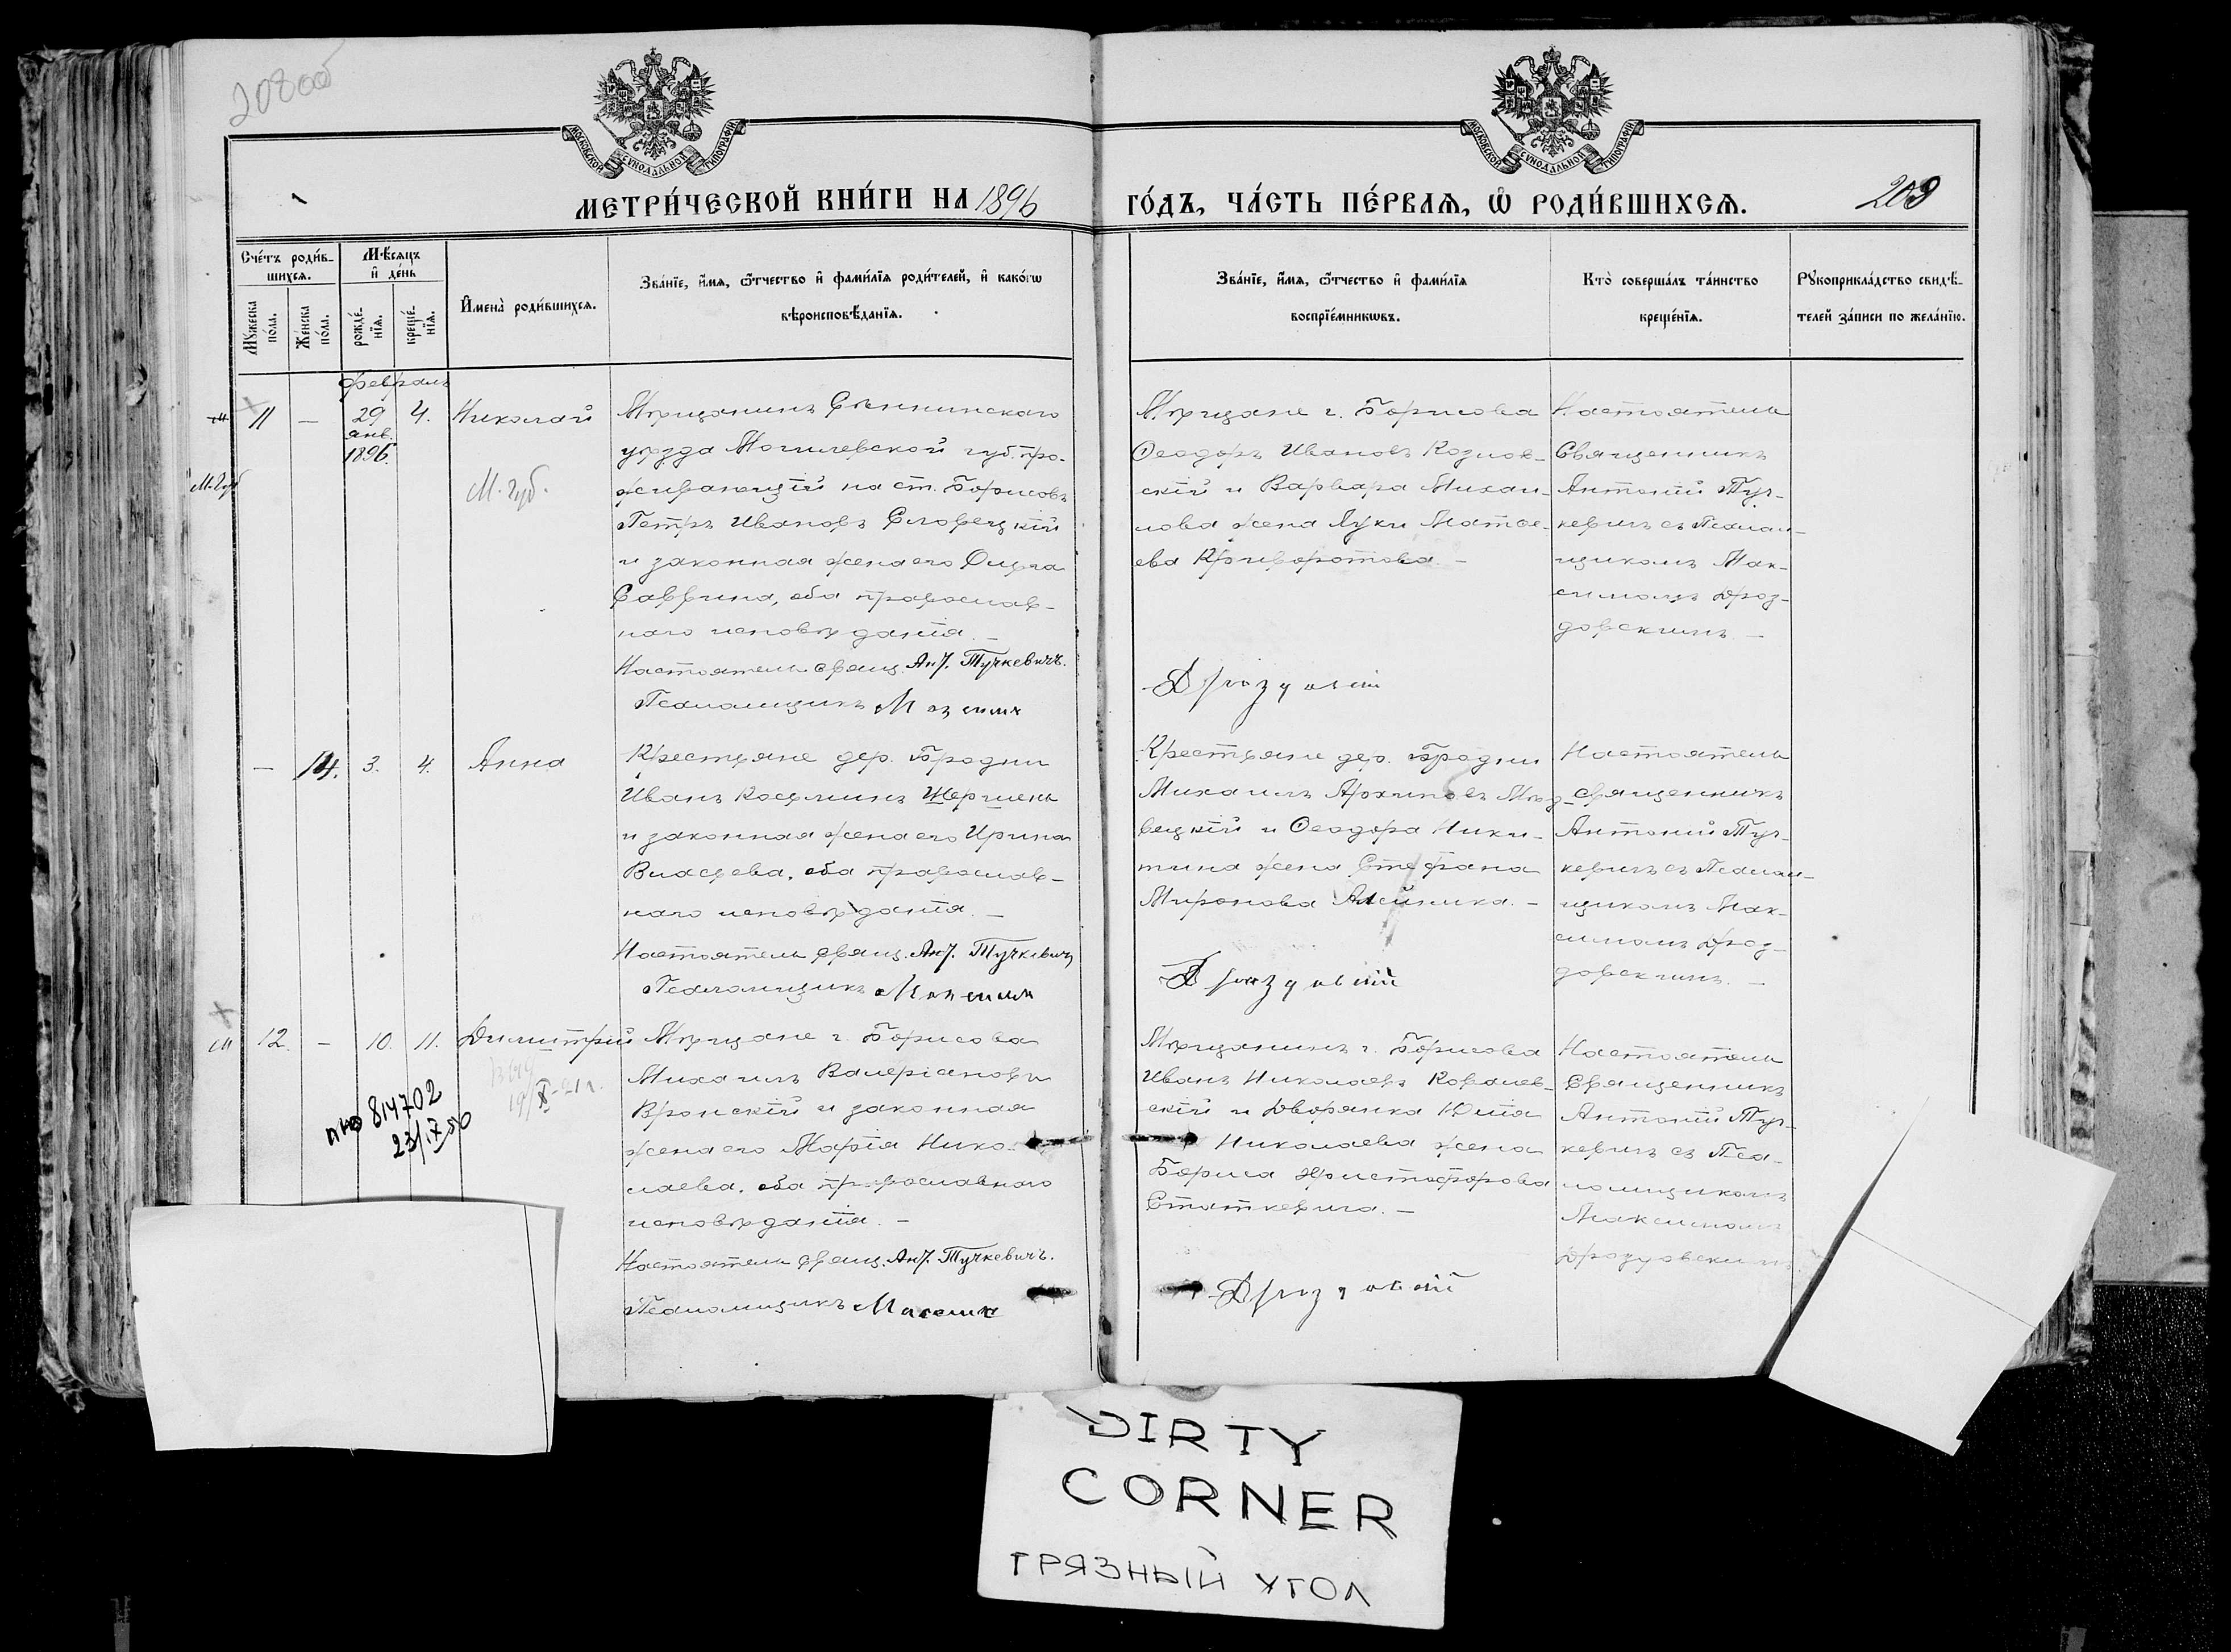 208об
МОСКОВСКОЙ СѴНОДАЛЬНОЙ ТИПОГРАФІИ
МОСКОВСКОЙ СѴНОДАЛЬНОЙ ТИПОГРАФІИ
МЕТРИ́ЧЕСКОЙ КНИ́ГИ НА 1896
ГО́ДЪ, ЧА́СТЬ ПЕ́РВАЯ, Ѽ РОДИ́ВШИХСЯ.
209
Сче́тъ роди́в-
шихся.
Мꙋ́жеска по́ла.
Же́нска по́ла.
Мѣ́сяцъ
и҆ де́нь
рожде́-
нїя.
креще́-
нїя.
И҆мена̀ роди́вшихся.
Зва́нїе, и҆́мя, ѻ҆́тчество и҆ фами́лїя роди́телей, и҆ како́гѡ
вѣроисповѣ́данїя.
Зва́нїе, и҆́мя, ѻ҆́тчество и҆ фами́лїя
воспрїе́мникѡвъ.
Кто̀ соверша́лъ та́инство
креще́нїя.
Рꙋкоприкла́дство свидѣ́-
телей за́писи по жела́нїю.
февраль
11
—
29
янв.
1896.
4.
Николай
М. губ.
М. губ.
Мѣщанинъ Сѣннинскаго
уѣзда Могилевской губ. про-
живающій на ст. Борисовъ
Петръ Ивановъ
и законная жена его Ольга
Саввина, оба православ-
наго исповѣданія. —
Настоятель свящ. Ант. Тучкевичъ.
Псаломщикъ Максимъ
Мѣщане г. Борисова
Ѳеодоръ Ивановъ Козлов-
скій и Варвара Михаи-
лова жена Луки Матѳе-
ева Криворотова. —
Дроздовскій
Настоятель
Священникъ
Антоній Туч-
кевичъ съ Псалом-
щикомъ Мак-
симомъ Дроз-
довскимъ. —
—
14.
3.
4.
Анна
Крестьяне дер. Бродни
Иванъ Косьминъ
и законная жена его Ирина
Власьева, оба православ-
наго исповѣданія. —
Настоятель свящ. Ант. Тучкевичъ
Псаломщикъ Максимъ
Крестьяне дер. Бродни
Михаилъ Архиповъ
и Ѳеодора Ники-
тина жена Стефана
Миронова Алейника. —
Дроздовскій
Настоятель
Священникъ
Антоній Туч-
кевичъ съ Псалом-
щикомъ Мак-
симомъ Дроз-
довскимъ. —
12.
—
10.
11.
Димитрій
19/X-21 г.
814702
23/IX 50
Мѣщане г. Борисова
Михаилъ Валеріановъ
Вронскій и законная
жена его Марія Нико-
лаева, оба православнаго
исповѣданія. —
Настоятель свящ. Ант. Тучкевичъ.
Псаломщикъ Максимъ
Мѣщанинъ г. Борисова
Иванъ Николаевъ Ковалев-
скій и Дворянка Юлія
Николаева жена
Бориса Христофорова
Статкевича. —
Дроздовскій
Настоятель
Священникъ
Антоній Туч-
кевичъ съ Пса-
ломщикомъ
Максимомъ
Дроздовскимъ.
DIRTY
CORNER
ГРЯЗНЫЙ УГОЛ